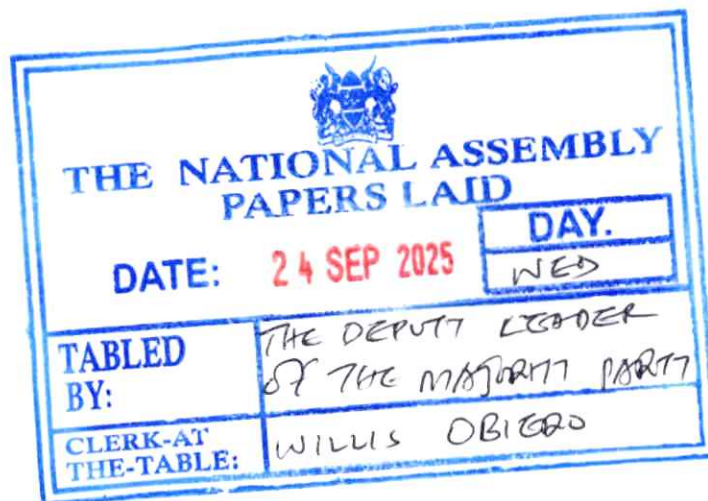 THE NATIONAL ASSEMBLY
PAPERS LAID
DATE: 24 SEP 2025
DAY.
WED
TABLED BY:
THE DEPUTY LEADER
OF THE MAJORITY PARTY
CLERK-AT
THE-TABLE:
WILLIS OBIERO